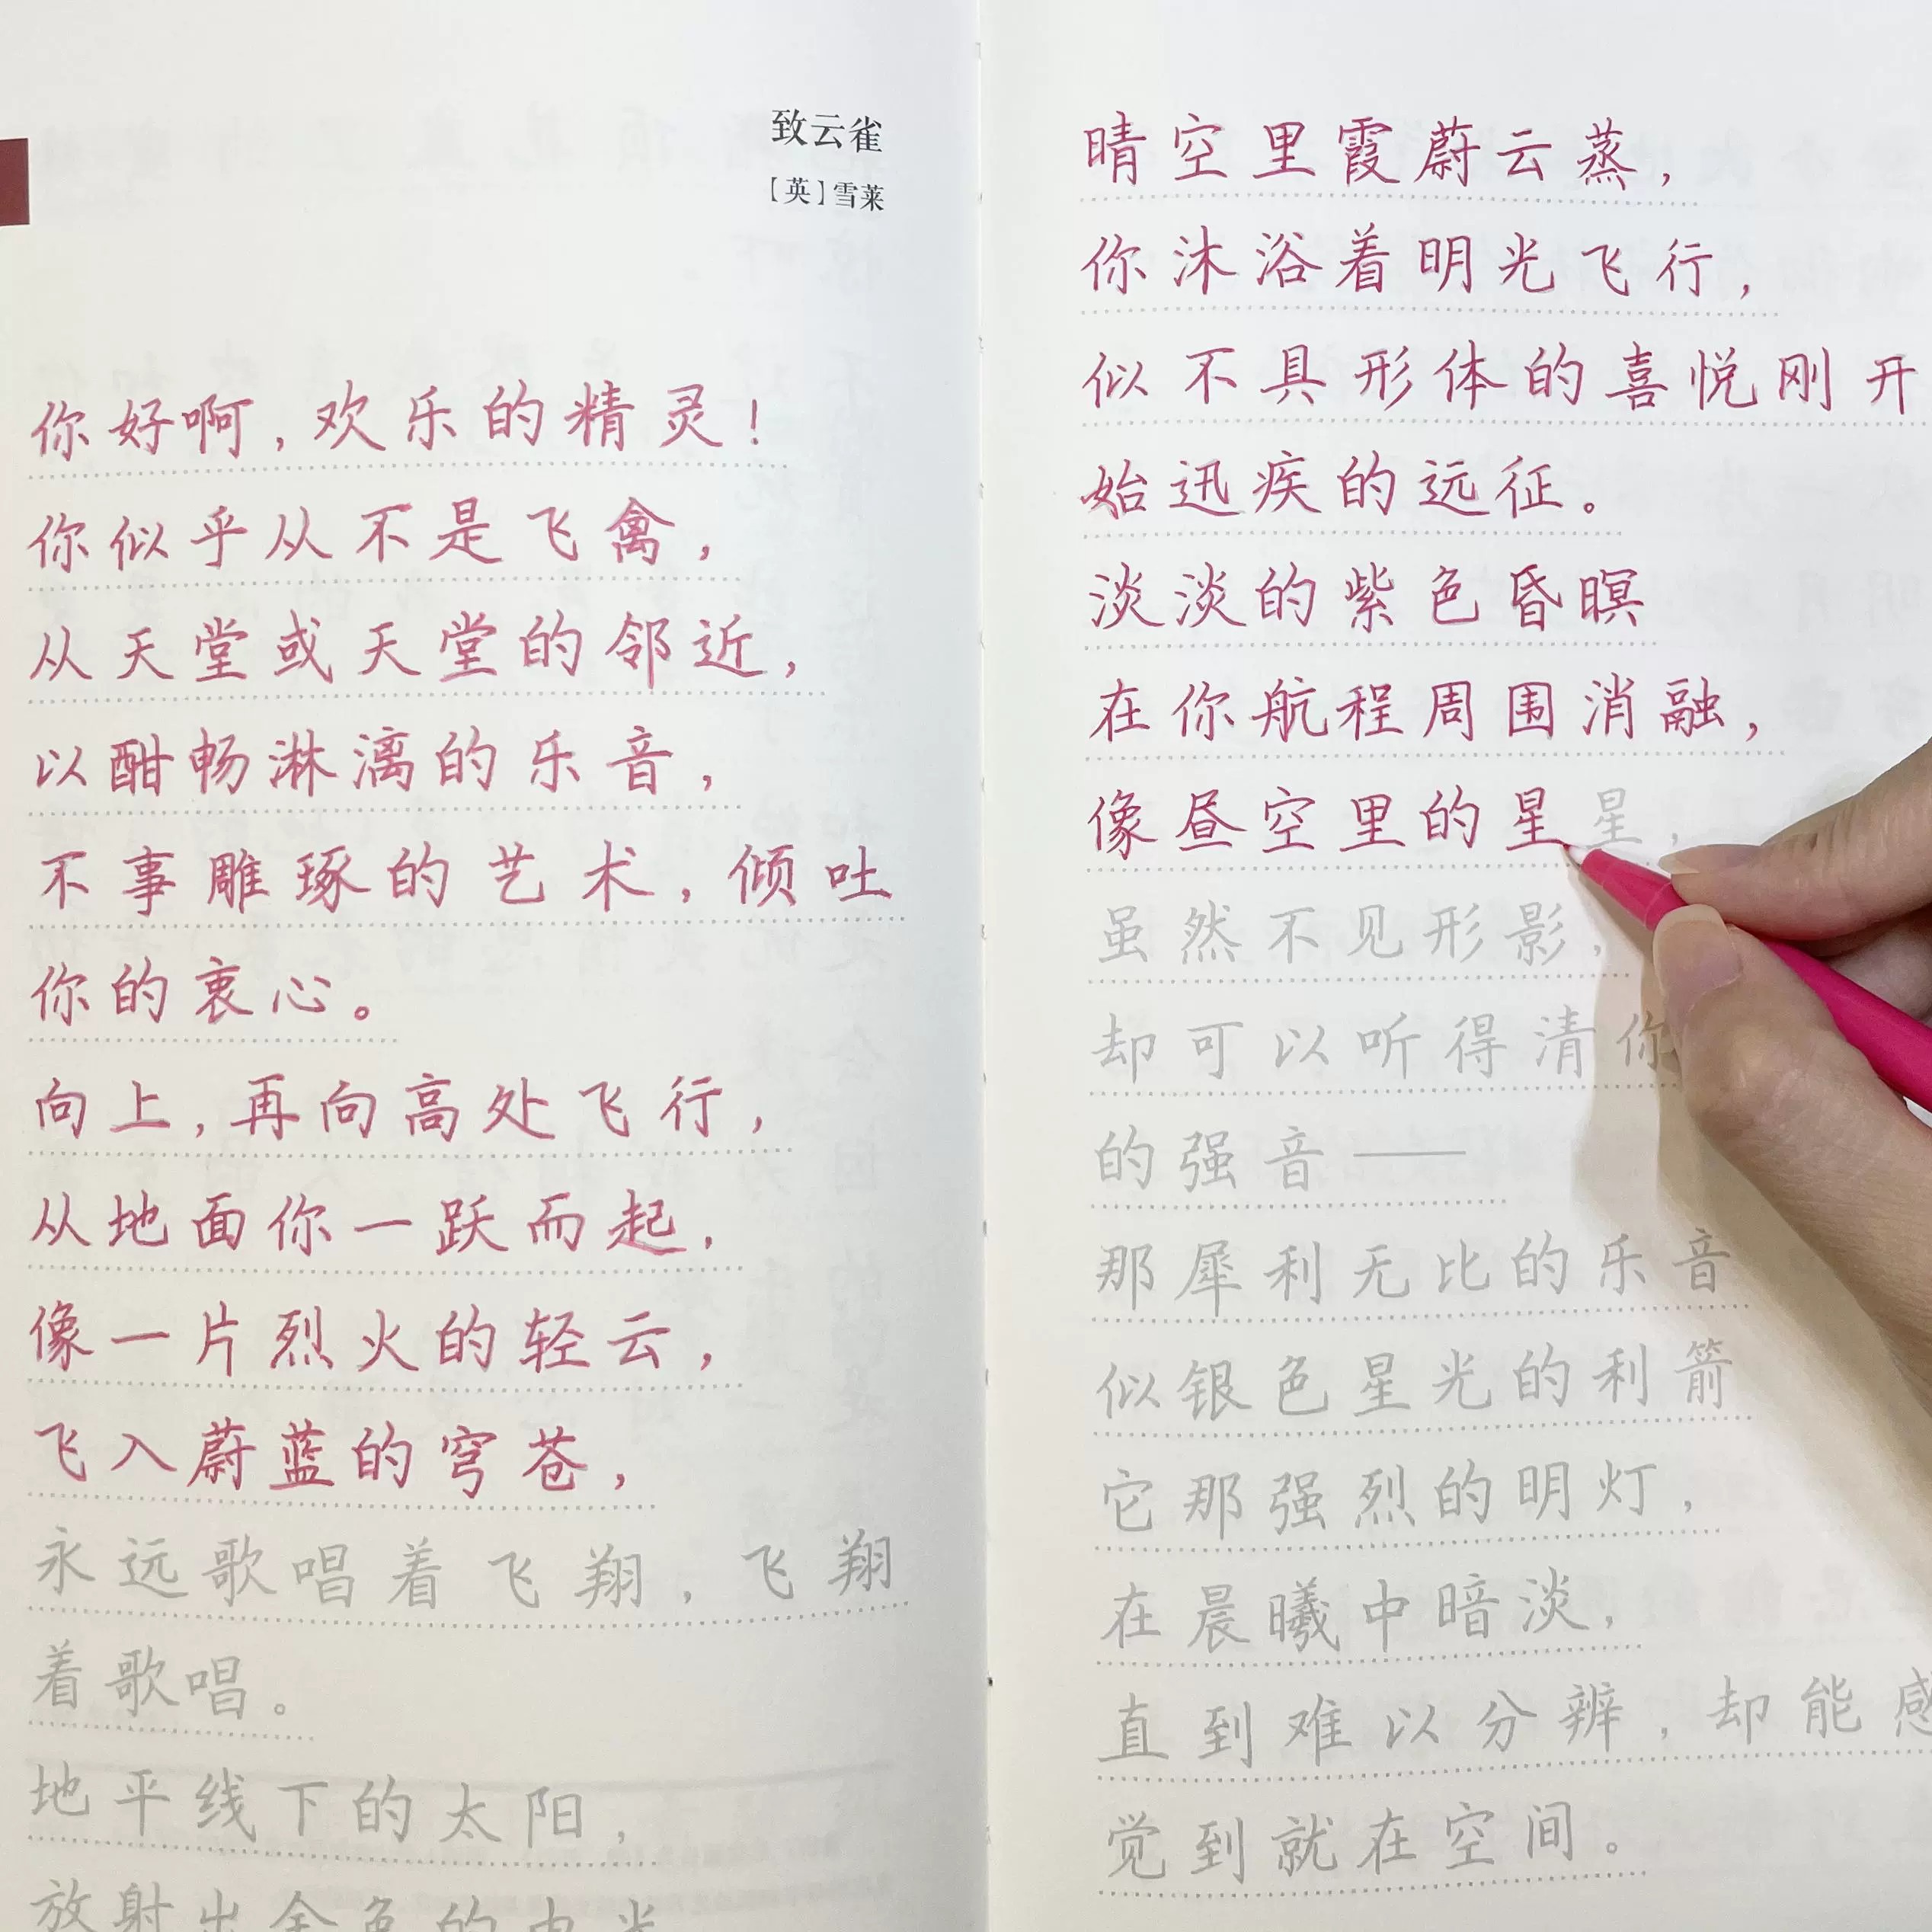 致云雀
【英】雪莱
你好啊,欢乐的精灵!
你似乎从不是飞禽,
从天堂或天堂的邻近,
以酣畅淋漓的乐音,
不事雕琢的艺术,倾吐
你的衷心。
向上,再向高处飞行,
从地面你一跃而起,
像一片烈火的轻云,
飞入蔚蓝的穹苍,
永远歌唱着飞翔,飞翔
着歌唱。
地平线下的太阳,
放射出金色的电光
晴空里霞蔚云蒸,
你沐浴着明光飞行,
似不具形体的喜悦刚开
始迅疾的远征。
淡淡的紫色昏暝
在你航程周围消融,
像昼空里的星星,
虽然不见形影,
却可以听得清你
的强音——
那犀利无比的乐音
似银色星光的利箭
它那强烈的明灯,
在晨曦中暗淡,
直到难以分辨,却能感
觉到就在空间。